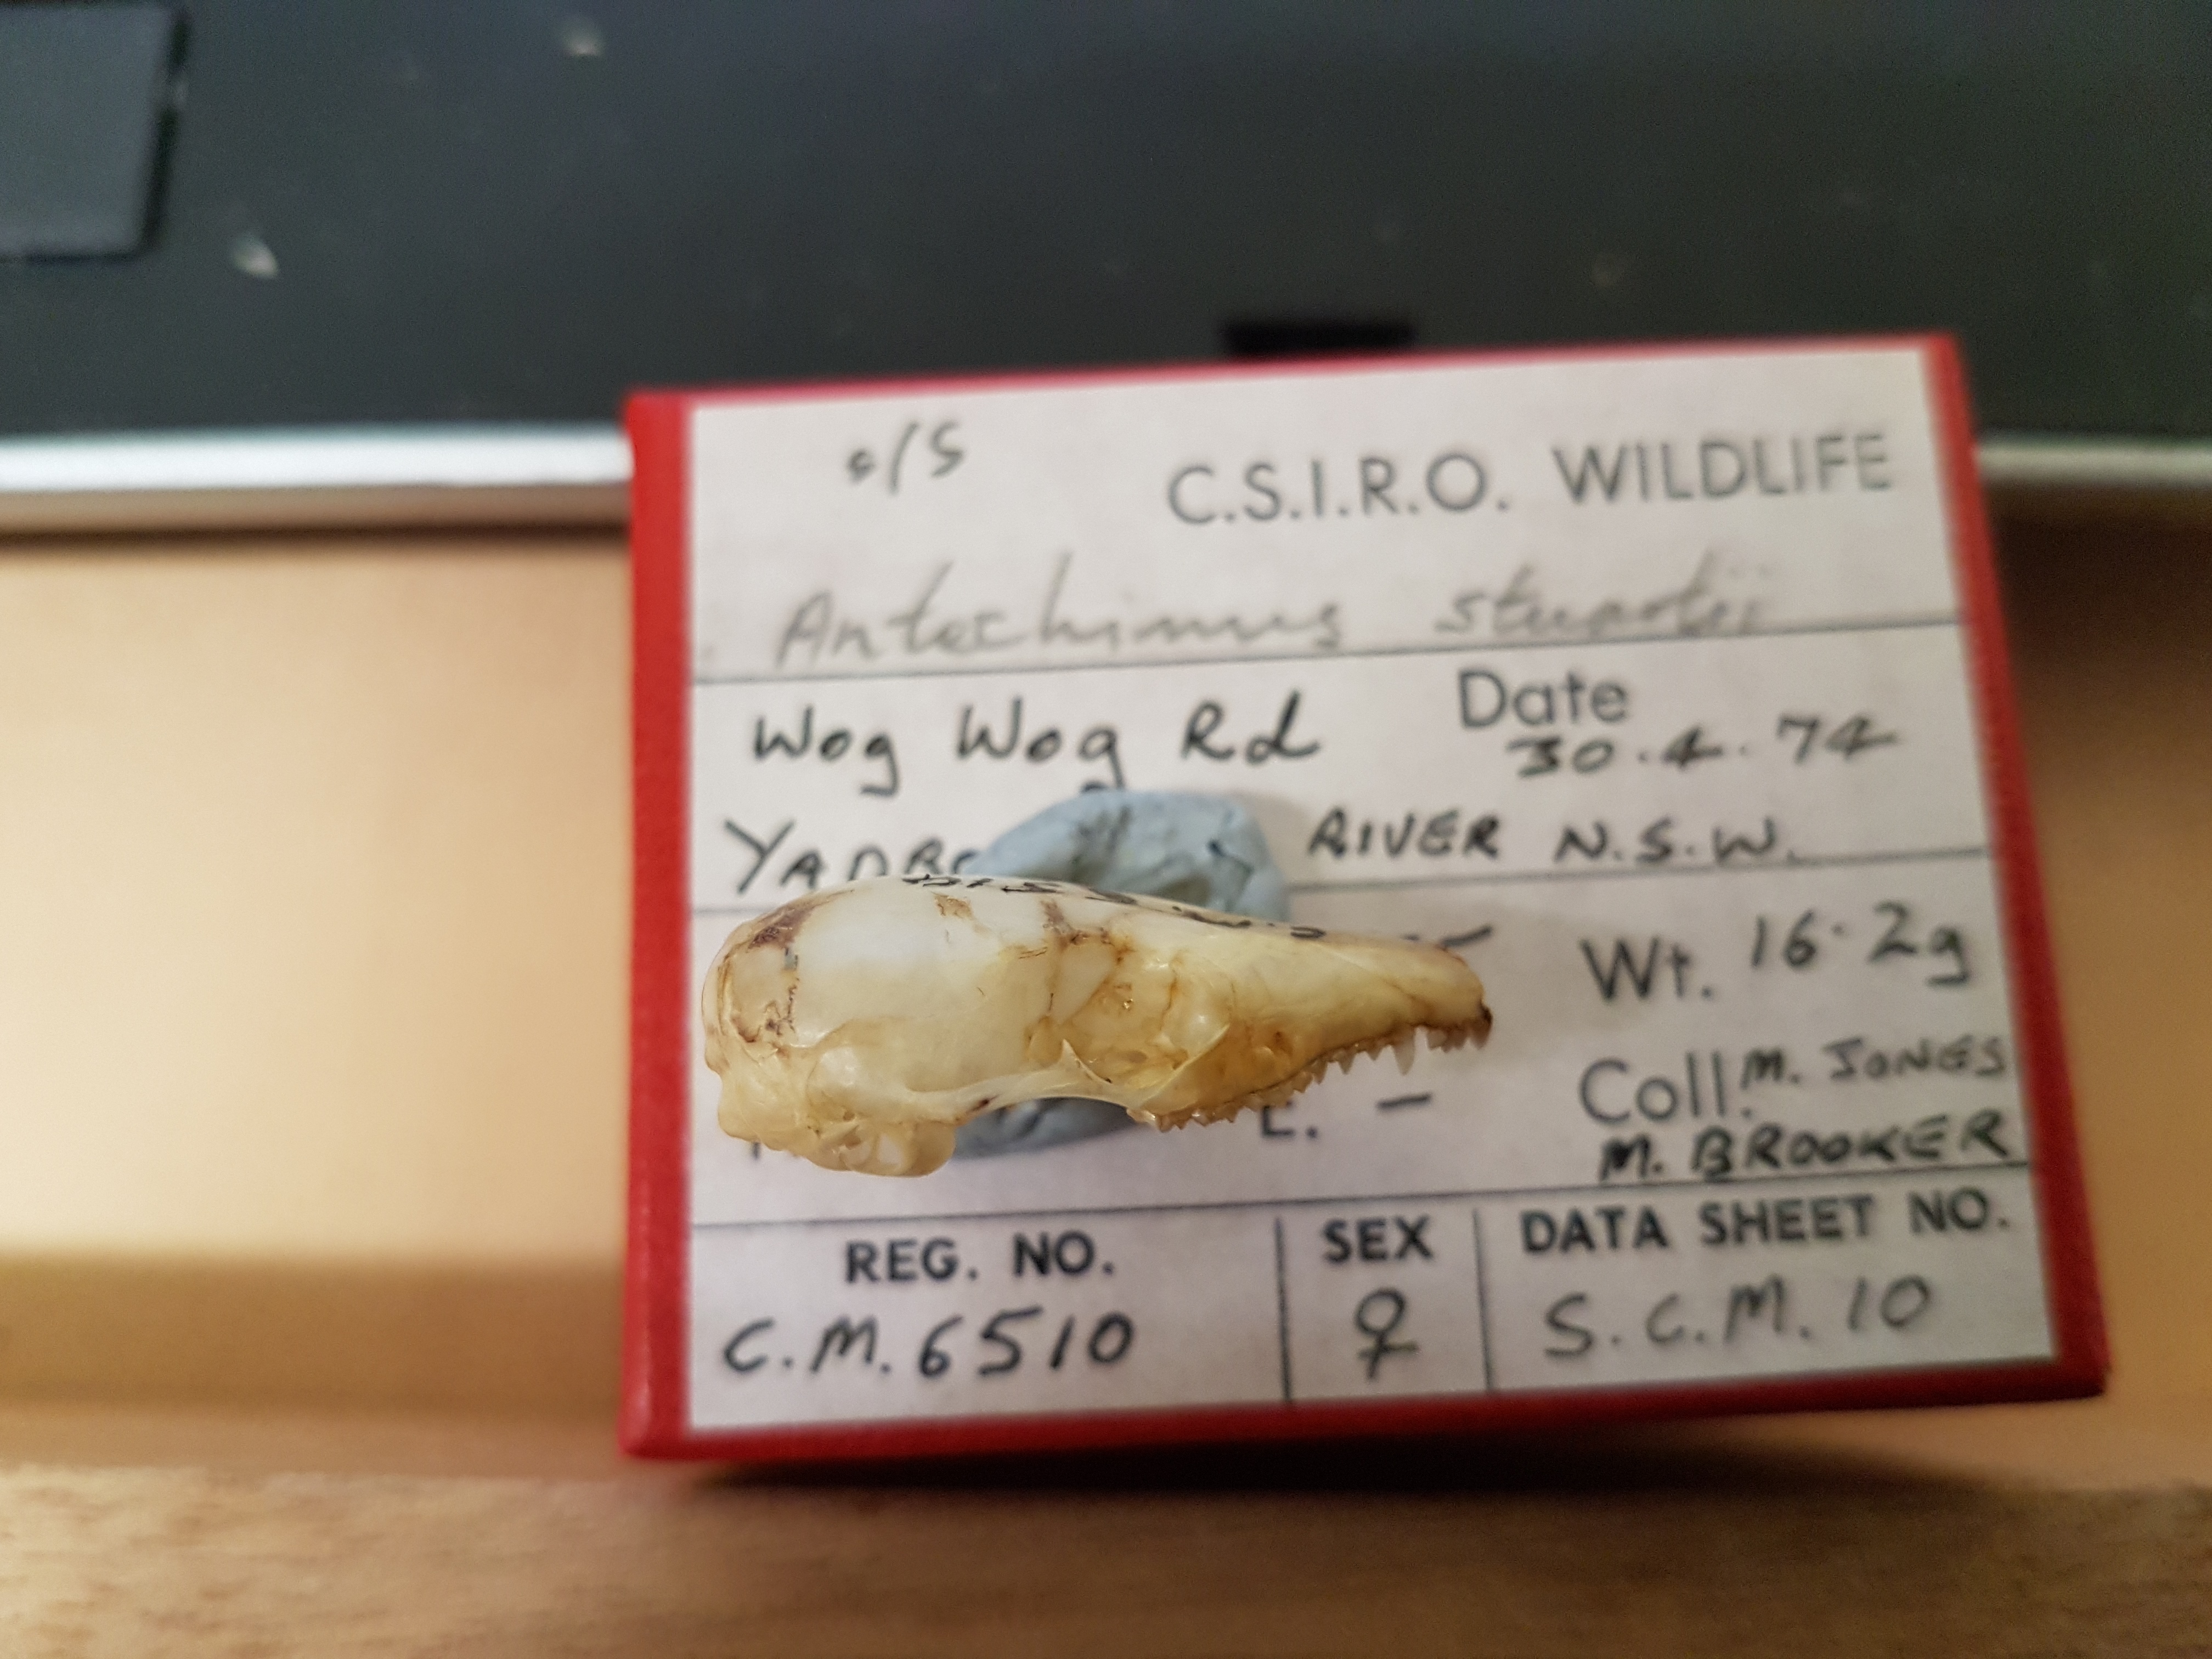 s/s
C.S.I.R.O. WILDLIFE
Antechinus stuartii
Wog Wog Rd Date 30.4.74
RIVER N.S.W.
- Wt. 16.2g
L. - Coll M. JONES
M. BROOKER
REG. NO. SEX DATA SHEET NO.
C.M. 6510 ♀ S.C.M. 10